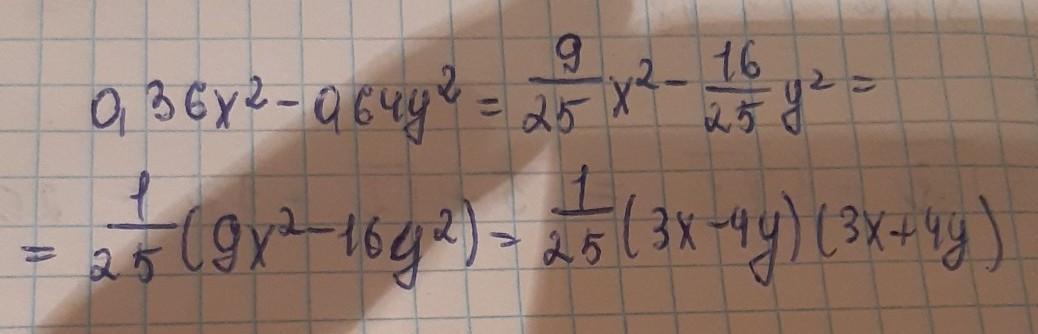 0,36x² - 0,64y² = 9/25 x² - 16/25 y² =
= 1/25 (9x² - 16y²) = 1/25 (3x - 4y)(3x + 4y)